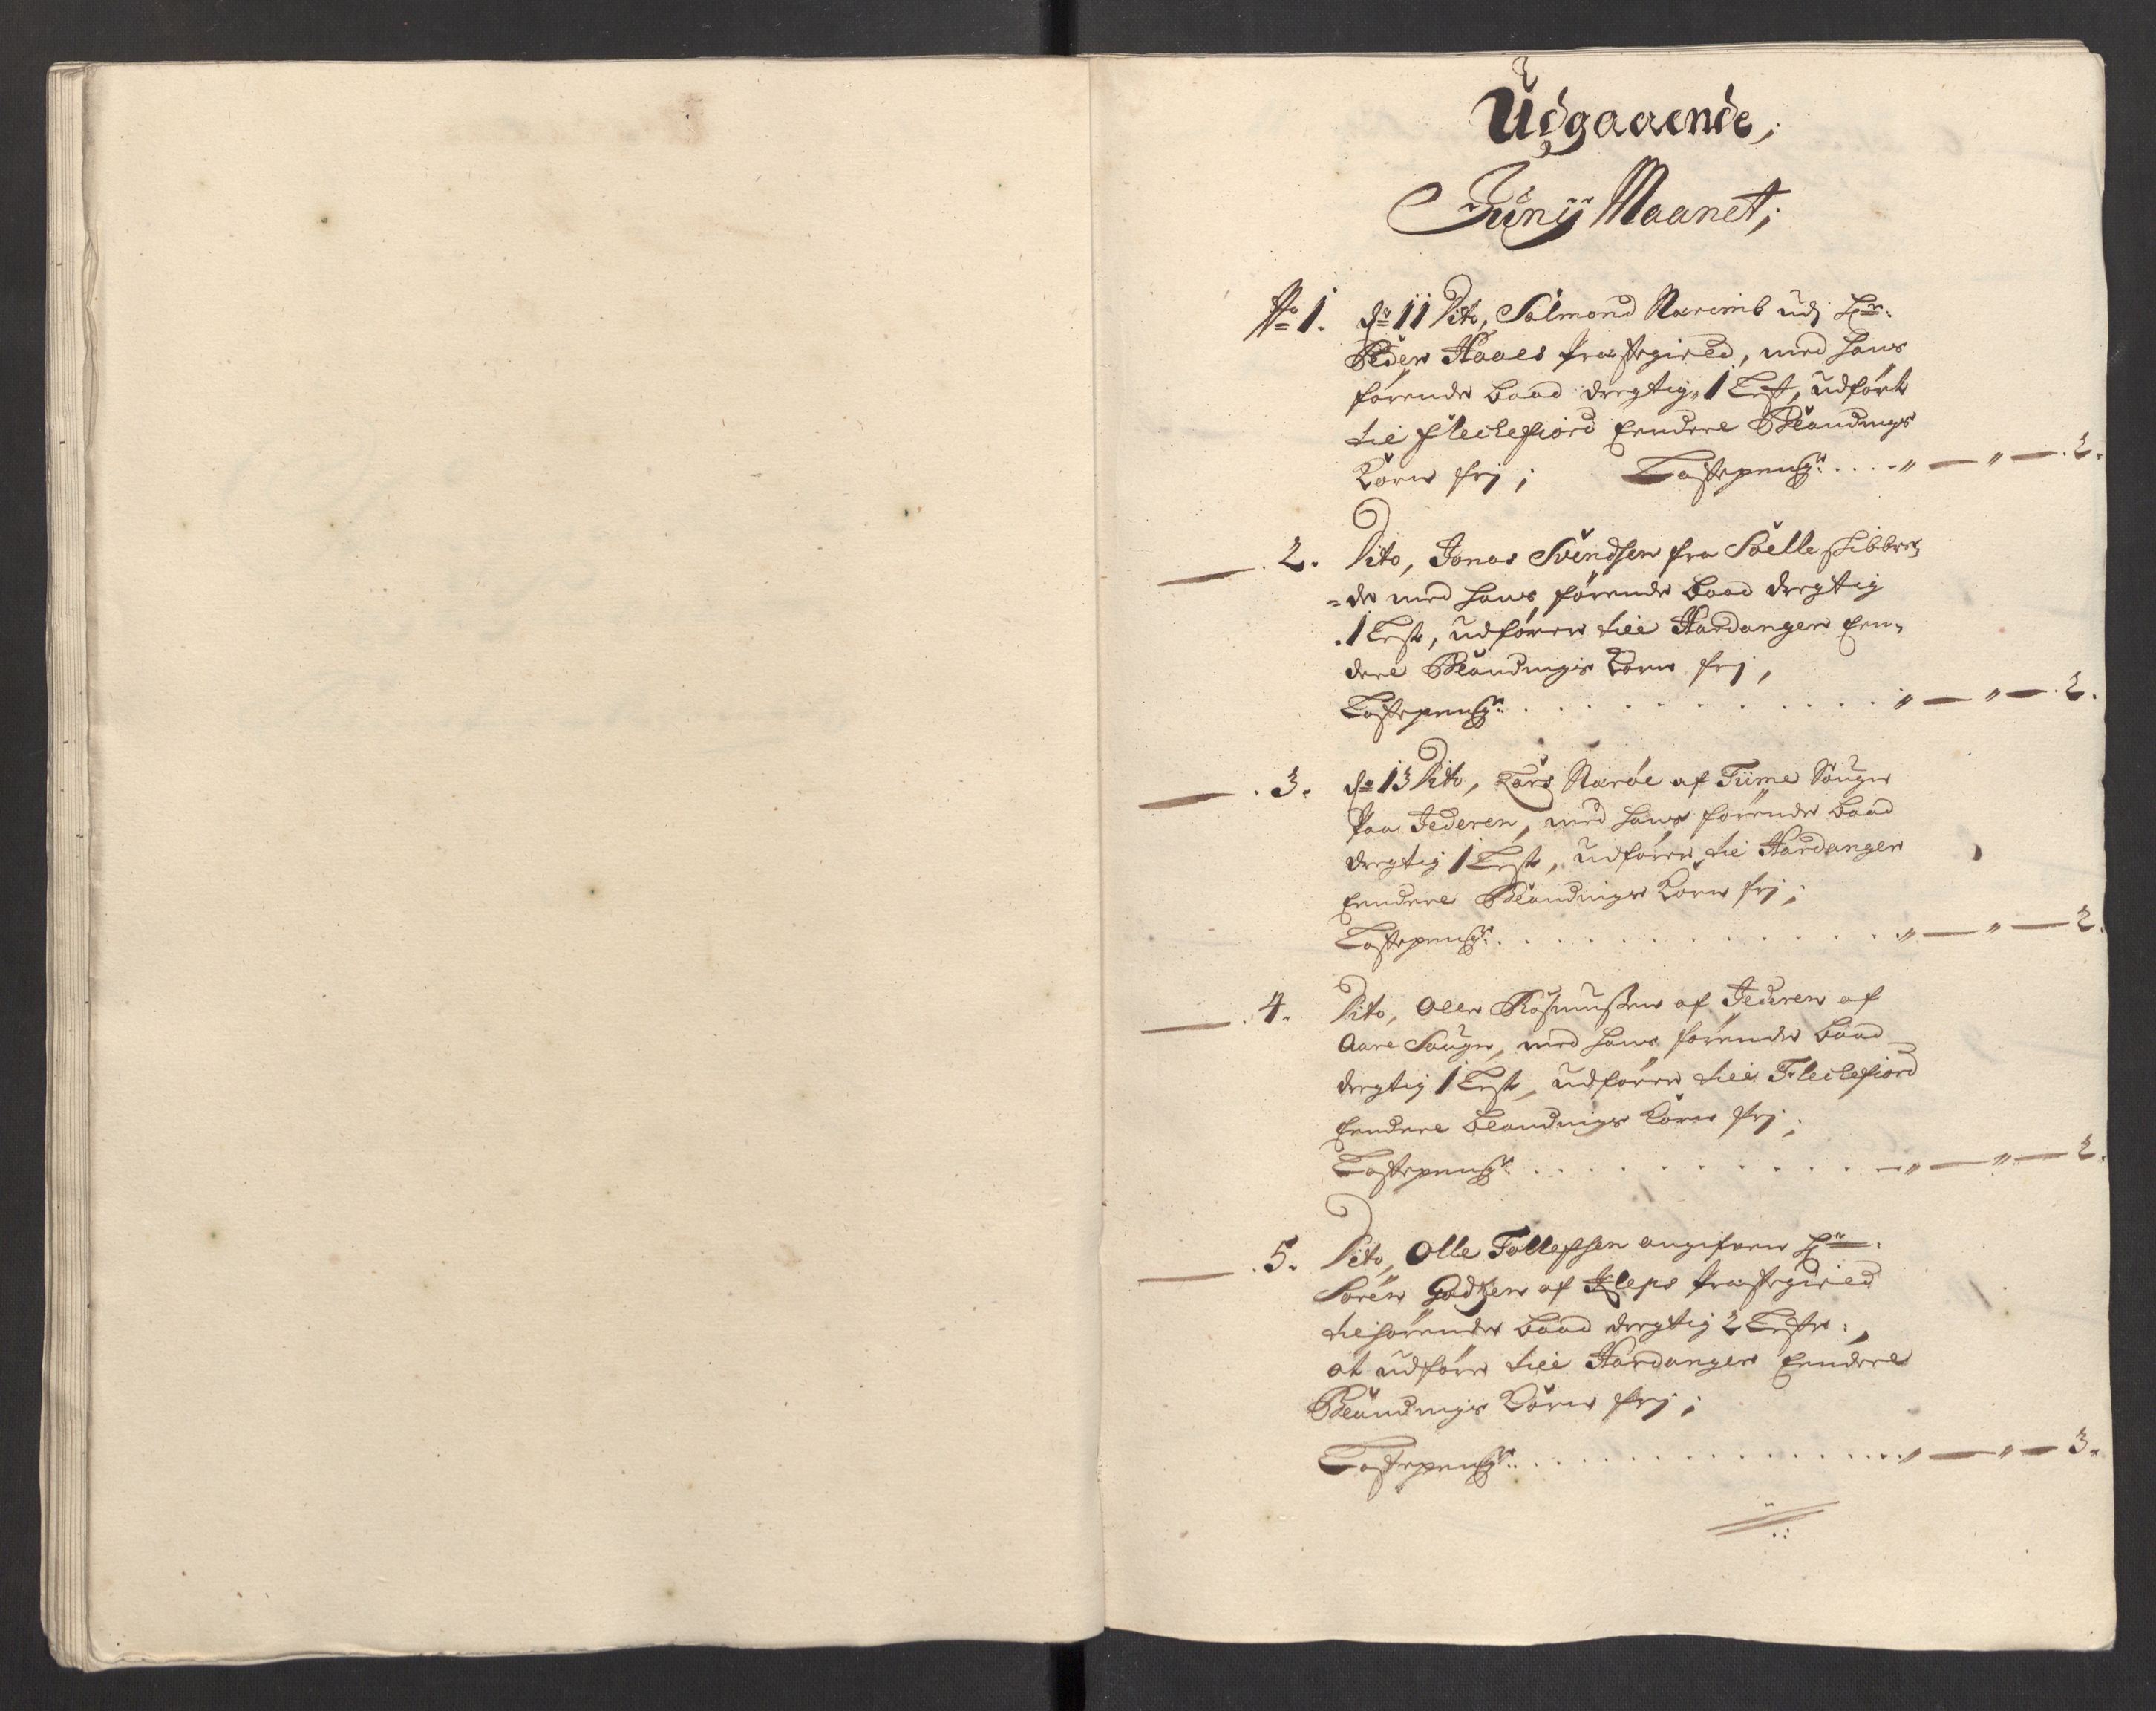 Udgaaende;
Junij Maanet;
No 1. dn 11 Dito, Salmond Nærimb udj Hr:
Peder Haaes Præstegield, med hans
førende Baad dregtig 1 Lest, udført
till Fleckefiord hendere Blandings
Korn frj; Lastepenge: . . . " — " — 2.
2. Dito, Jonas Svendsen fra Soelle skibbre-
=de med hans førende Baad dregtig
1 Lest, udfører till Hardanger hen-
dere Blandings Korn frj,
Lastepenge: . . . " — " — 2.
3. dn 13 Dito, Lars Nærøe af Tiime Sougn
Paa Jederen, med hans førende Baad
dregtig 1 Lest, udfører till Hardanger
hendere Blandings Korn frj;
Lastepenge: . . . " — " — 2.
4. Dito, Oller Rasmussen af Jederen af
Aare Sougn, med hans førende Baad
dregtig 1 Lest, udfører till Fleckefiord
hendere blandings Korn frj;
Lastepenge: . . . " — " — 2.
5. Dito, Olle Tollefsen angifven Hr:
Søren Godtzen af Kleps Præstegield
tilhørende Baad dregtig 2 Lester,
at udføre till Hardanger hendere
Blandings Korn frj;
Lastepenge: . . . " — " — 3.